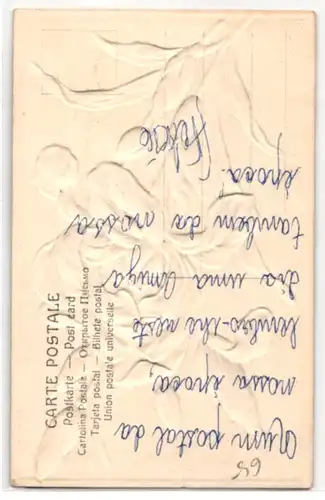 CARTE POSTALE
Postkarte — Post card
Cartolina Postale — Открытое Письмо
Tarjeta postal — Bilhete postal
Union postale universelle
Num postal da
nossa época,
lembro-lhe neste
dia uma Amiga
tambem da nossa
época!
68